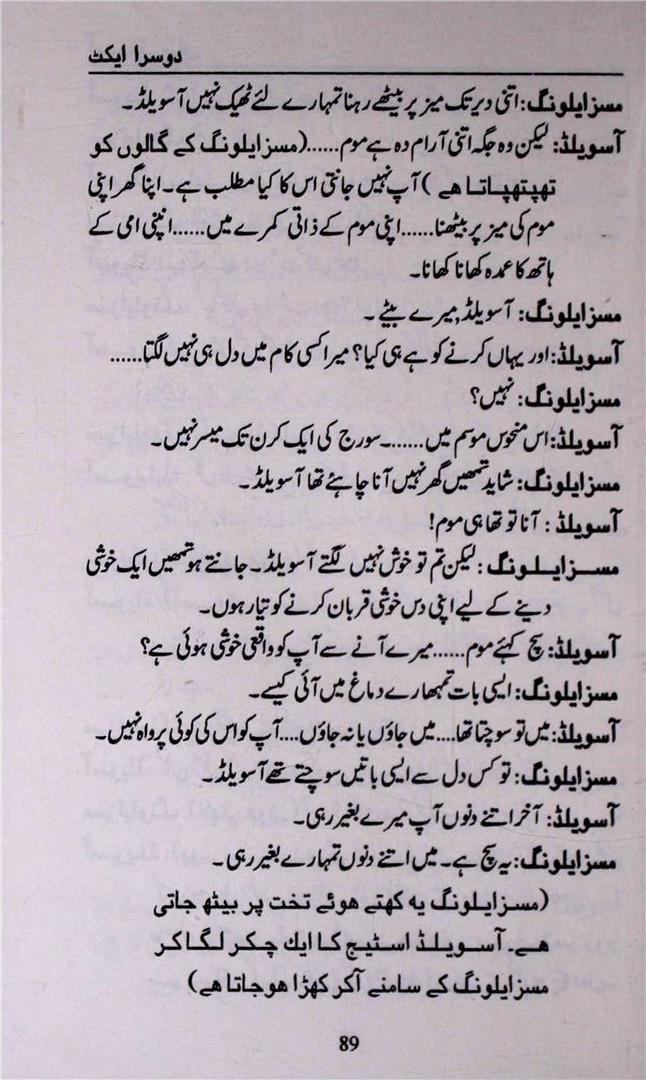 دوسرا ایکٹ
مسز ایلونگ: اتنی دیر تک میز پر بیٹھے رہنا تمہارے لئے ٹھیک نہیں آسویلڈ۔
آسویلڈ: لیکن وہ جگہ اتنی آرام دہ ہے موم......(مسز ایلونگ کے گالوں کو
تھپتھپاتا ھے) آپ نہیں جانتی اس کا کیا مطلب ہے۔ اپنا گھر اپنی
موم کی میز پر بیٹھنا......اپنی موم کے ذاتی کمرے میں......انپنی امی کے
ہاتھ کا عمدہ کھانا کھانا۔
مسز ایلونگ: آسویلڈ, میرے بیٹے۔
آسویلڈ: اور یہاں کرنے کو ہے ہی کیا؟ میرا کسی کام میں دل ہی نہیں لگتا......
مسز ایلونگ: نہیں؟
آسویلڈ: اس منحوس موسم میں......۔سورج کی ایک کرن تک میسر نہیں۔
مسز ایلونگ: شاید تمھیں گھر نہیں آنا چاہئے تھا آسویلڈ۔
آسویلڈ: آنا تو تھا ہی موم!
مسز ایلونگ: لیکن تم تو خوش نہیں لگتے آسویلڈ۔ جانتے ہو تمھیں ایک خوشی
دینے کے لیے اپنی دس خوشی قربان کرنے کو تیار ہوں۔
آسویلڈ: سچ کہئے موم......میرے آنے سے آپ کو واقعی خوشی ہوئی ہے؟
مسز ایلونگ: ایسی بات تمہارے دماغ میں آئی کیسے۔
آسویلڈ: میں تو سوچتا تھا....میں جاؤں یا نہ جاؤں....آپ کو اس کی کوئی پرواہ نہیں۔
مسز ایلونگ: تو کس دل سے ایسی باتیں سوچتے تھے آسویلڈ۔
آسویلڈ: آخر اتنے دنوں آپ میرے بغیر رہی۔
مسز ایلونگ: یہ سچ ہے۔ میں اتنے دنوں تمہارے بغیر رہی۔
(مسز ایلونگ یہ کھتے ھوئے تخت پر بیٹھ جاتی
ھے۔ آسویلڈ اسٹیج کا ایك چکر لگا کر
مسز ایلونگ کے سامنے آکر کھڑا ھو جاتا ھے)
89